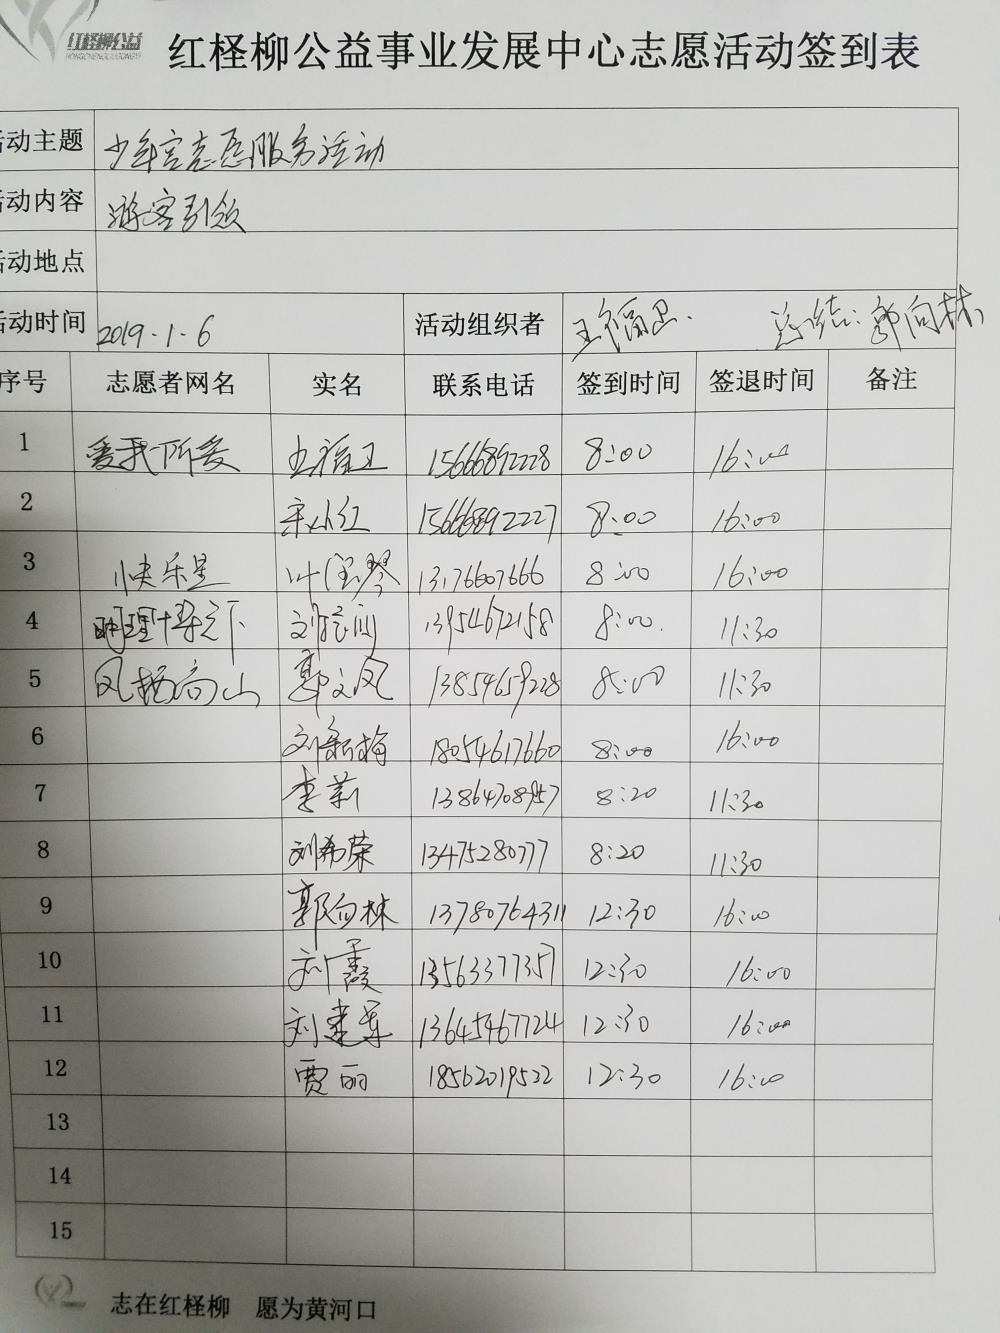 红柽柳公益
HONGCHENGLIUGONGYI
红柽柳公益事业发展中心志愿活动签到表
活动主题 少年宫志愿服务活动
活动内容 游客引领
活动地点
活动时间 2019-1-6 活动组织者 王福卫. 总结:郭向林
序号 志愿者网名 实名 联系电话 签到时间 签退时间 备注
1 爱我所爱 王福卫 15666892228 8:00 16:00
2 宋小红 15666892227 8:00 16:00
3 快乐星 叶宝琴 13176607666 8:00 16:00
4 13954672158 8:00. 11:30
5 凤栖高山 郭文凤 13854659228 8:00 11:30
6 刘新梅 18054617660 8:00 16:00
7 李莉 13864708957 8:20 11:30
8 刘希荣 13475280777 8:20 11:30
9 郭向林 13780764311 12:30 16:00
10 刘霞 13563377357 12:30 16:00
11 刘建军 13645467724 12:30 16:00
12 贾丽 18562019522 12:30 16:00
13
14
15
志在红柽柳 愿为黄河口